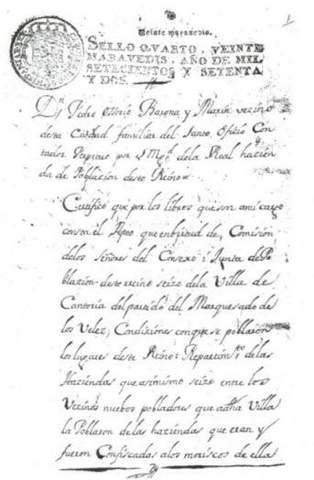 Veinte maravedis.
SELLO QVARTO, VEINTE
MARAVEDIS, AÑO DE MIL
SETECIENTOS Y SETENTA
Y DOS.
Dn. Pedro Barona y Marin vezino
desta Ciudad familiar del Santo Oficio Con
tador por S. Mg. de la Real hazien
da de Poblazion deste Reino=
Certifico que por los libros que son a mi cargo
consta el que en virtud de Comision
delos señores del Consexo i Junta de Po
blazion deste reino se izo dela Villa de
Cantoria del partido del Marquesado de
los Velez, Condiziones con que se poblaron
los lugares deste Reino i Repartim.to delas
Haziendas que asimismo se izo entre los
Vezinos nuebos pobladores que a dha Villa
la Poblaron de las haziendas que eran y
fueron Confiscadas alos moriscos de ella